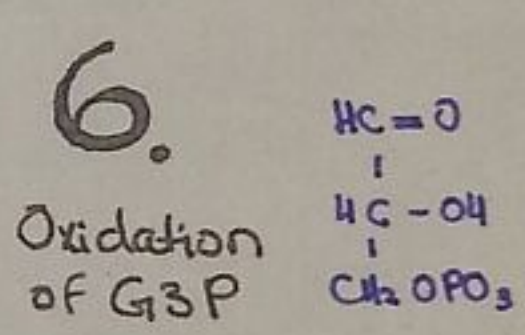 6.
Oxidation
of G3P
HC=O
HC-OH
CH₂OPO₃